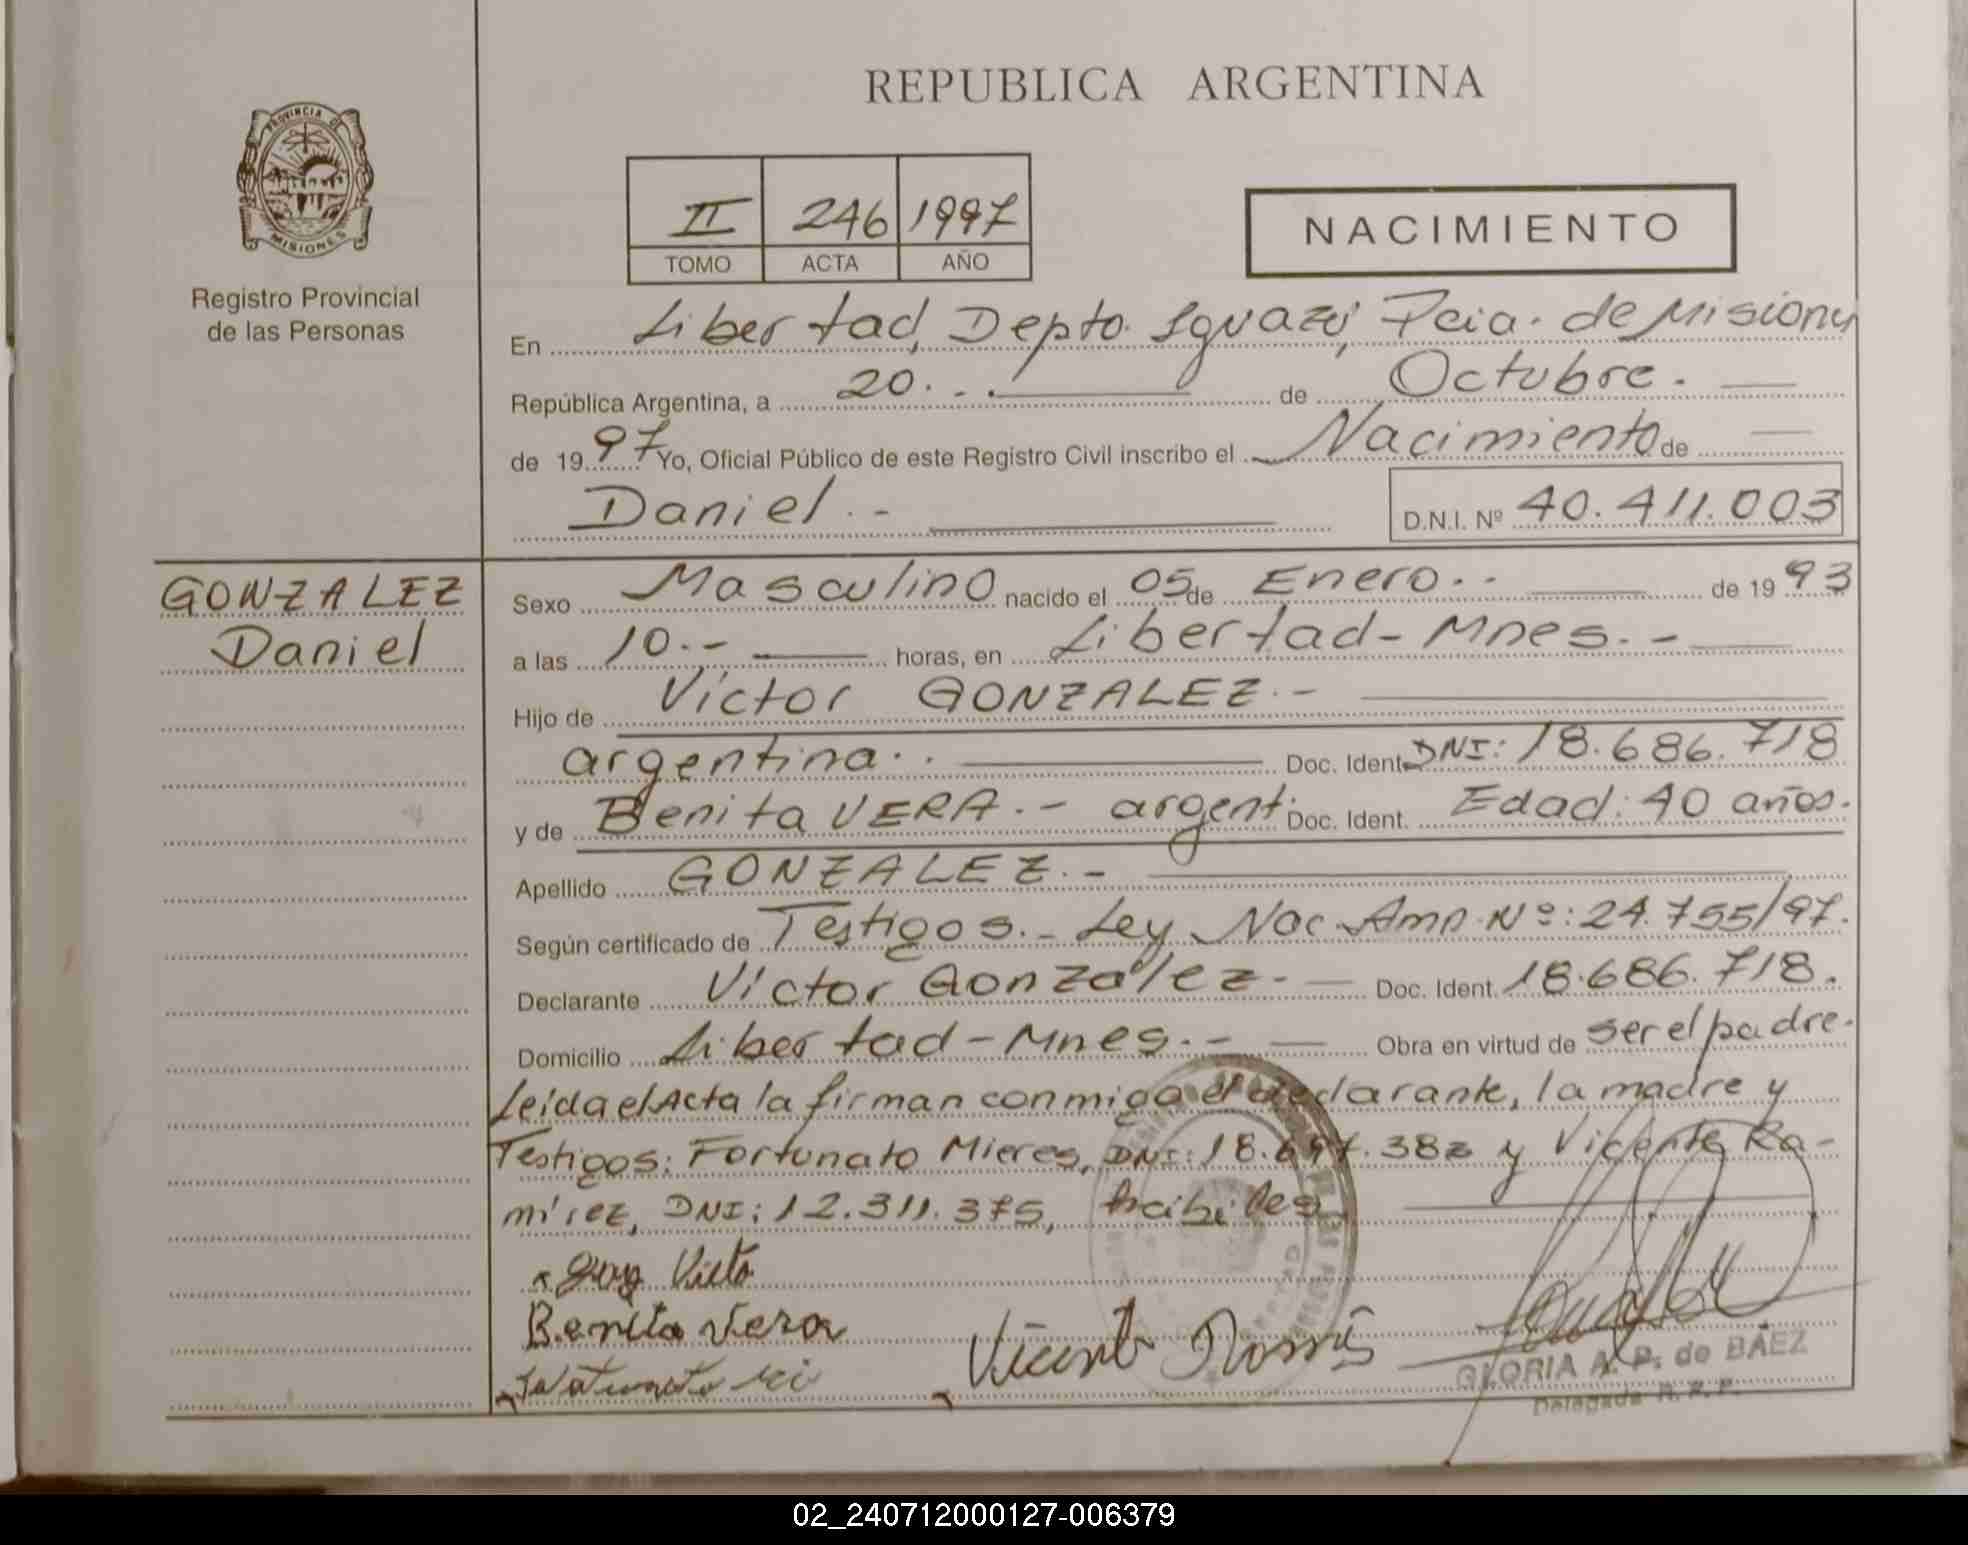 REPUBLICA ARGENTINA
PROVINCIA DE
MISIONES
Registro Provincial
de las Personas
II 246 1997
TOMO ACTA AÑO
NACIMIENTO
En Libertad, Depto. Iguazú, Pcia. de Misiones
República Argentina, a 20.- de Octubre.
de 1997 Yo, Oficial Público de este Registro Civil inscribo el Nacimiento de
Daniel.- D.N.I. Nº 40.411.003
GONZALEZ
Daniel
Sexo Masculino nacido el 05 de Enero.. de 1993
a las 10.- horas, en Libertad-Mnes.-
Hijo de Víctor GONZALEZ.-
argentina.. Doc. Ident. DNI: 18.686.718
y de Benita VERA.- argent. Doc. Ident. Edad: 40 años.
Apellido GONZALEZ.-
Según certificado de Testigos.- Ley Nac. Amp. Nº: 24.755/97.
Declarante Víctor González.- Doc. Ident. 18.686.718.
Domicilio Libertad-Mnes.- Obra en virtud de ser el padre.
Leida el Acta la firman conmigo el declarante, la madre y
Testigos: Fortunato Mieres, DNI: 18.697.382 y Vicente Ra-
mírez, DNI: 12.311.375, habiles
Benita Vera
GLORIA A. P. de BÁEZ
Delegada R. P. P.
02_240712000127-006379